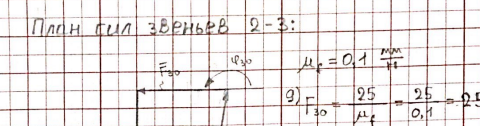 План сил звеньев 2-3:
F₃₀ φ₃₀
μ_F = 0,1 мм/Н
9) F₃₀ = 25/μ_F = 25/0,1 = 25